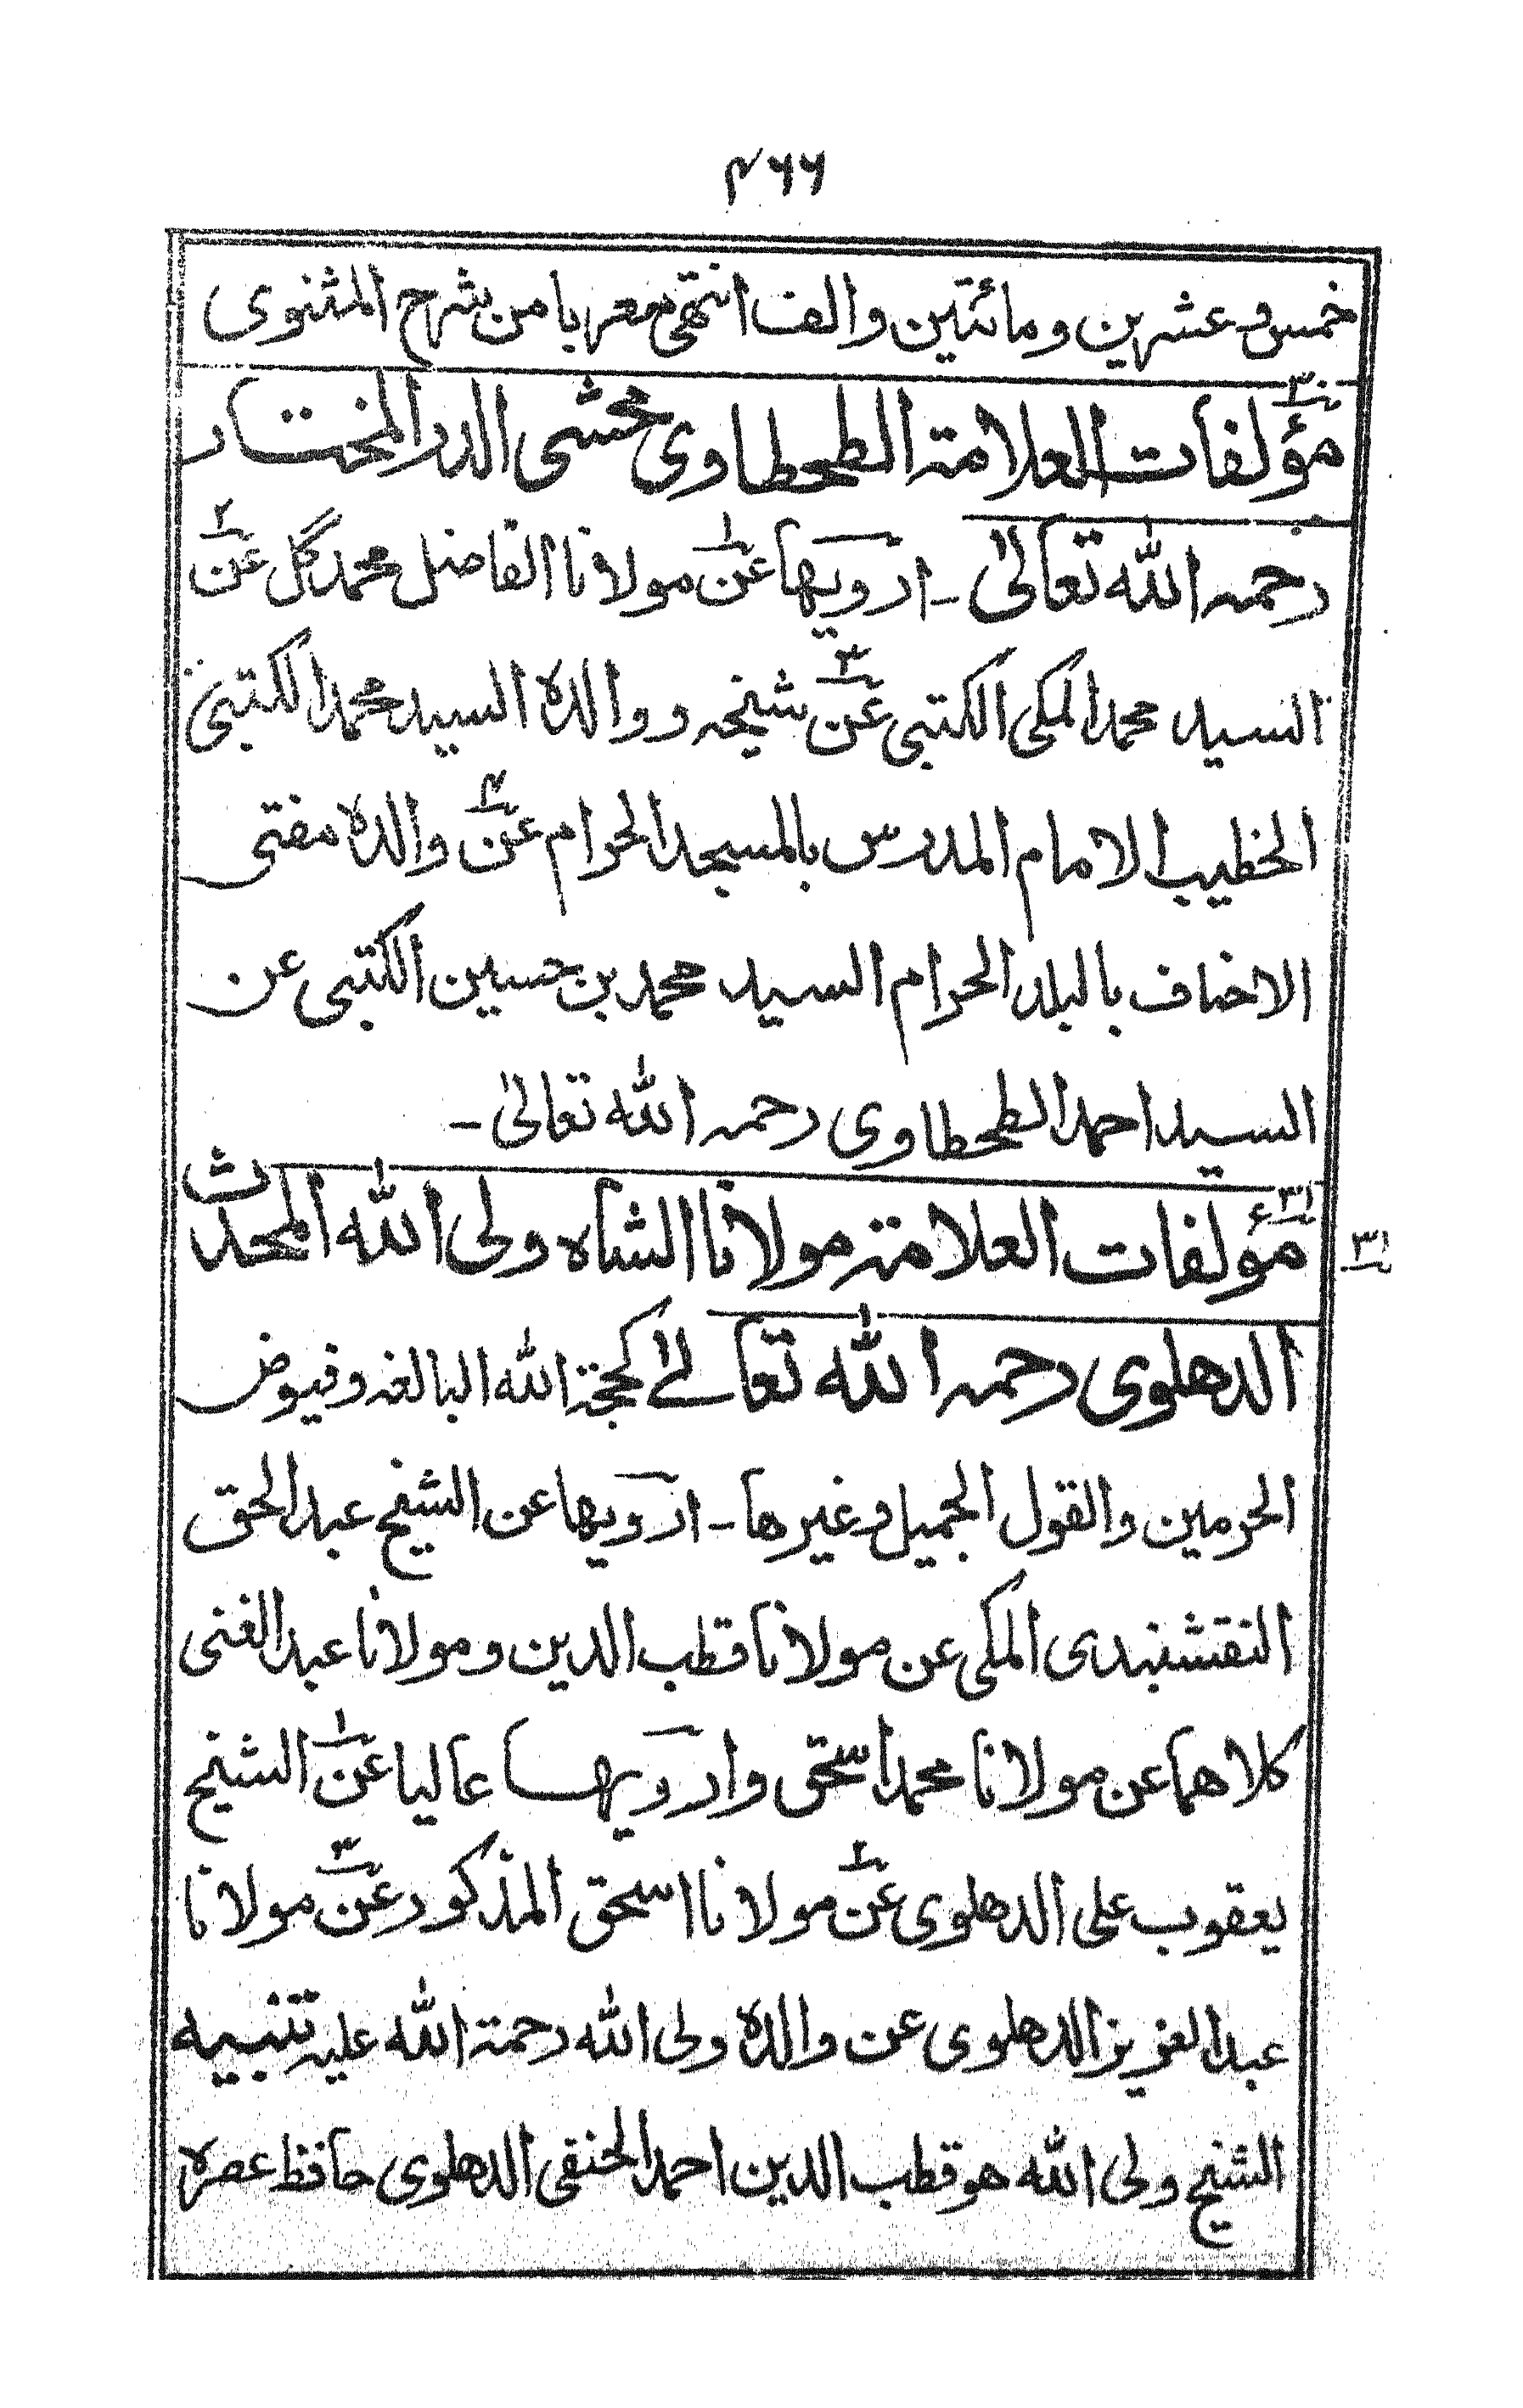 ۴۶۶
خمس وعشرين ومائتين والف انتهى معربا من شرح المثنوى
۳۰ مؤلفات العلامة الطحطاوى محشى الدر المختار
رحمه الله تعالىٰ ـ ارويها عن۱ مولانا الفاضل محمد گل عن۲
السيد محمد المكى الكتبى عن۳ شيخه ووالده السيد محمد الكتبى
الخطيب الامام المدرس بالمسجد الحرام عن۴ والده مفتى
الاحناف بالبلد الحرام السيد محمد بن حسين الكتبى عن
السيد احمد الطحطاوى رحمه الله تعالىٰ ـ
۳۱ مؤلفات العلامة مولانا الشاه ولى الله المحدث
۳۱
الدهلوى رحمه الله تعالےٰ كحجة الله البالغه وفيوض
الحرمين والقول الجميل وغيرها ـ ارويها عن الشيخ عبد الحق
النقشبندى المكى عن مولانا قطب الدين ومولانا عبد الغنى
كلاهما عن مولانا محمد اسحق وارويها عاليا عن۱ الشيخ
يعقوب على الدهلوى عن۲ مولانا اسحق المذكور عن۳ مولانا
عبد العزيز الدهلوى عن والده ولى الله رحمة الله عليه تنبيه
الشيخ ولى الله هو قطب الدين احمد الحنفى الدهلوى حافظ عصره